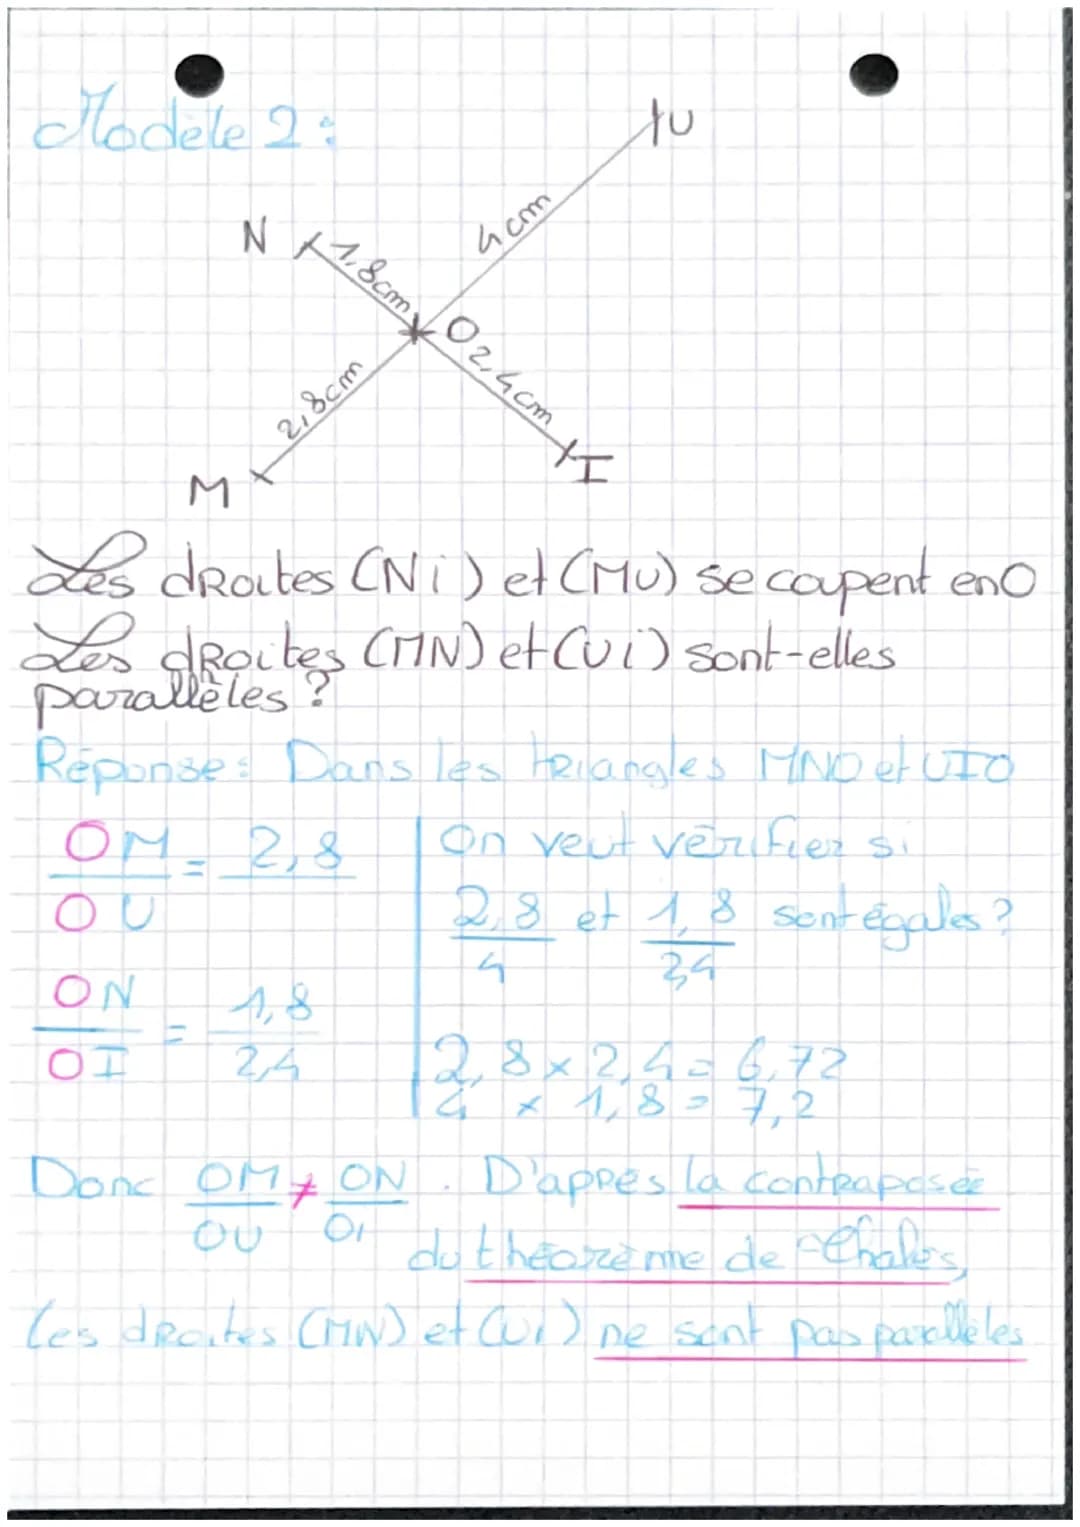 Modèle 2 :
U
N
4 cm
1,8cm
O
2,4cm
2,8cm
M
I
Les droites (Ni) et (MU) se coupent en O
Les droites (MN) et (Ui) sont-elles
parallèles ?
Réponse : Dans les triangles MNO et UIO
OM = 2,8
OU
ON = 1,8
OI 2,4
On veut vérifier si
2,8 et 1,8 sont égales ?
4 2,4
2,8 x 2,4 = 6,72
4 x 1,8 = 7,2
Donc OM ≠ ON . D'après la contraposée
OU OI
du théorème de Thalès,
les droites (MN) et (Ui) ne sont pas parallèles